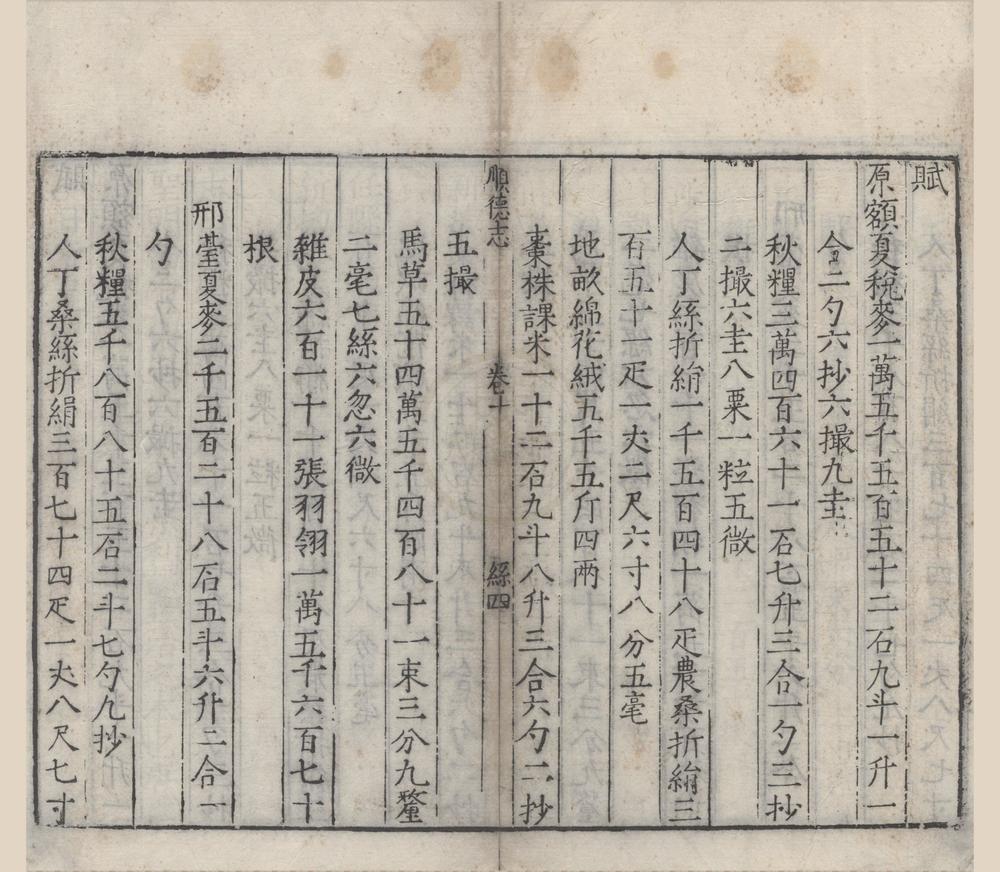 賦
原額夏稅麥一萬五千五百五十二石九斗一升一
合二勺六抄六撮九圭
秋糧三萬四百六十一石七升三合一勺三抄
二撮六圭八粟一粒五微
人丁絲折絹一千五百四十八疋農桑折絹三
百五十一疋一丈二尺六寸八分五毫
地畝綿花絨五千五斤四兩
棗株課米一十二石九斗八升三合六勺二抄
順德志 卷十 絲四
五撮
馬草五十四萬五千四百八十一束三分九釐
二毫七絲六忽六微
雜皮六百一十一張羽翎一萬五千六百七十
根
邢臺夏麥二千五百二十八石五斗六升二合一
勺
秋糧五千八百八十五石二斗七勺九抄
人丁桑絲折絹三百七十四疋一丈八尺七寸